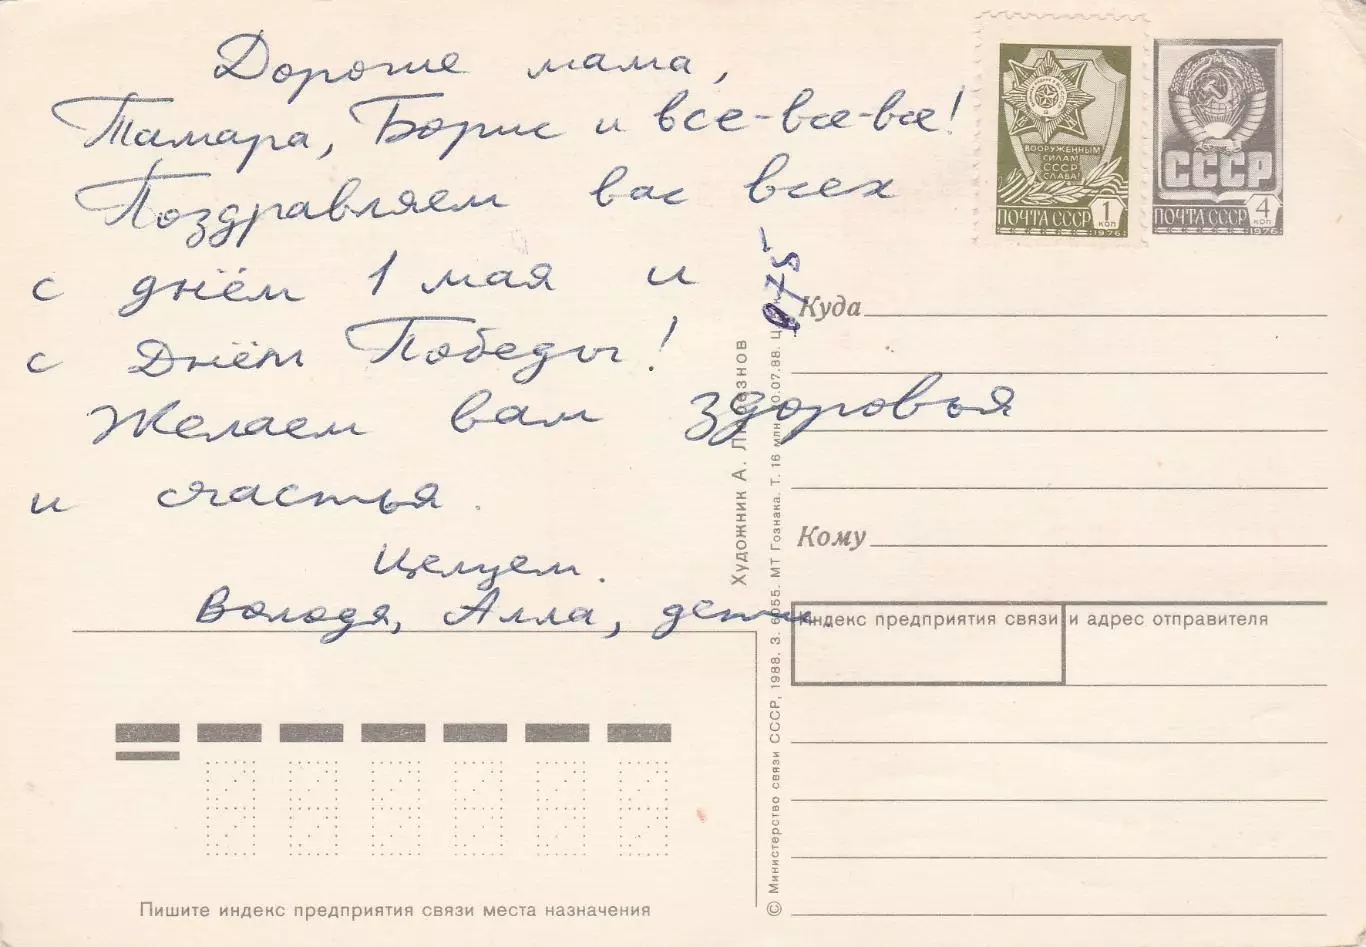 Дорогие мама,
Тамара, Борис и все-все-все!
Поздравляем вас всех
с днём 1 мая и
с Днём Победы!
Желаем вам здоровья
и счастья.
Целуем.
Володя, Алла, дети.
ВООРУЖЕННЫМ
СИЛАМ
СССР
СЛАВА!
ПОЧТА СССР
1
КОП
1976
СССР
ПОЧТА СССР
4
КОП
1976
Куда
Кому
Индекс предприятия связи и адрес отправителя
Пишите индекс предприятия связи места назначения
Художник А.
© Министерство связи СССР, 1988. З. 6055. МТ Гознака. Т. 16 млн. 0.07.88. Ц.